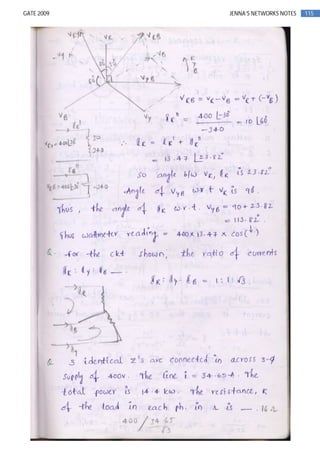 GATE 2009
JENNA'S NETWORKS NOTES 115
VR VRB
-VB
VYB
VB VY
VRB = VR - VB = VR + (-VB)
400 L-30
-j40
= 10 L60
∴ IR = IR' + IR"
= 13.47 L23.82°
so angle b/w VR, IR is 23.82°
-Angle of VYB w.r.t VR is 90.
Thus, the angle of IR w.r.t. VYB = 90 + 23.82
= 113.82°
Thus wattmeter reading = 400 x 13.47 x cos( )
Q. -for -the ckt shown, the ratio of currents
IR : IY : IB —.
IR : IY : IB = 1 : 1 : √3
IR
IB
IY
Q. 3 identical Z's are connected in across 3-φ
supply of 400v. The line i = 34.65 A. The
total power is 14.4 kw. The resistance, R
of the load in each ph. in Ω is —. 16 Ω
400 / 34.65
√3